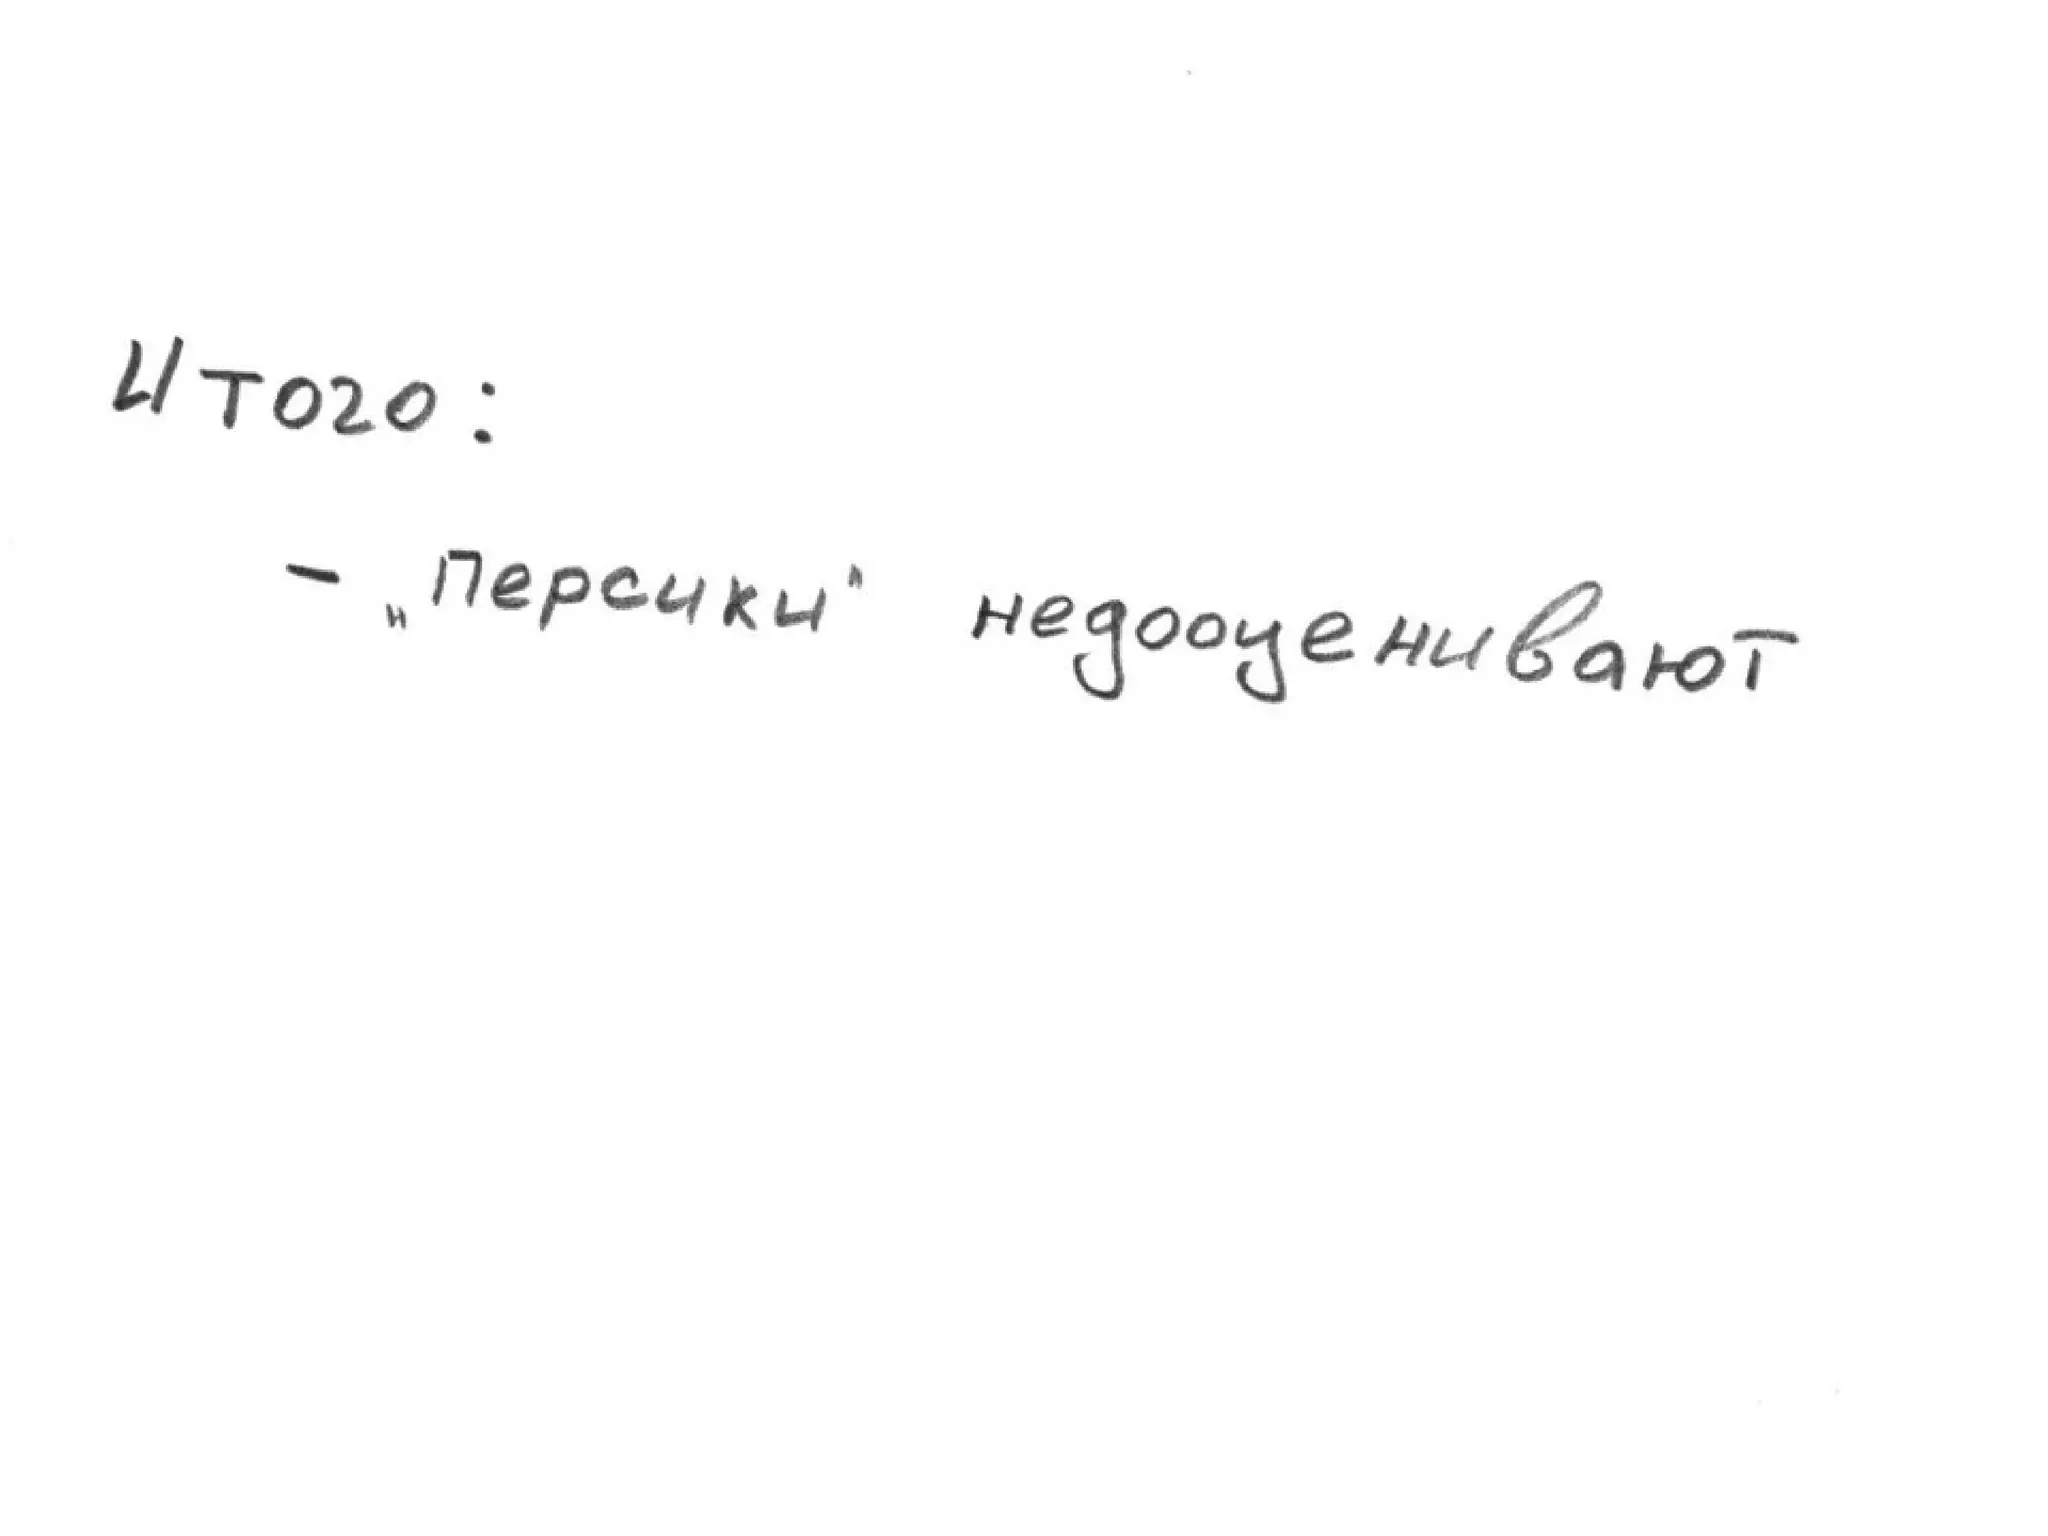 Итого:
- „Персики" недооценивают